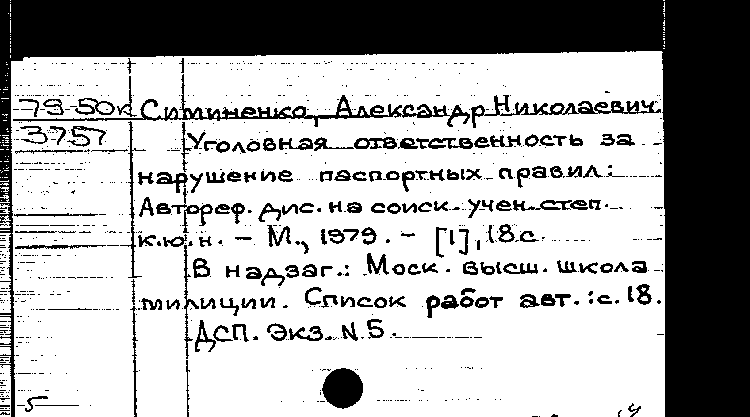 79-50к Симиненко, Александр Николаевич.
3757 Уголовная ответственность за
нарушение паспортных правил:
Автореф. дис. на соиск. учен. степ.
к.ю.н. - М., 1979. - [1], 18 с.
В надзаг.: Моск. высш. школа
милиции. Список работ авт.: с. 18.
ДСП. Экз. N 5.
5